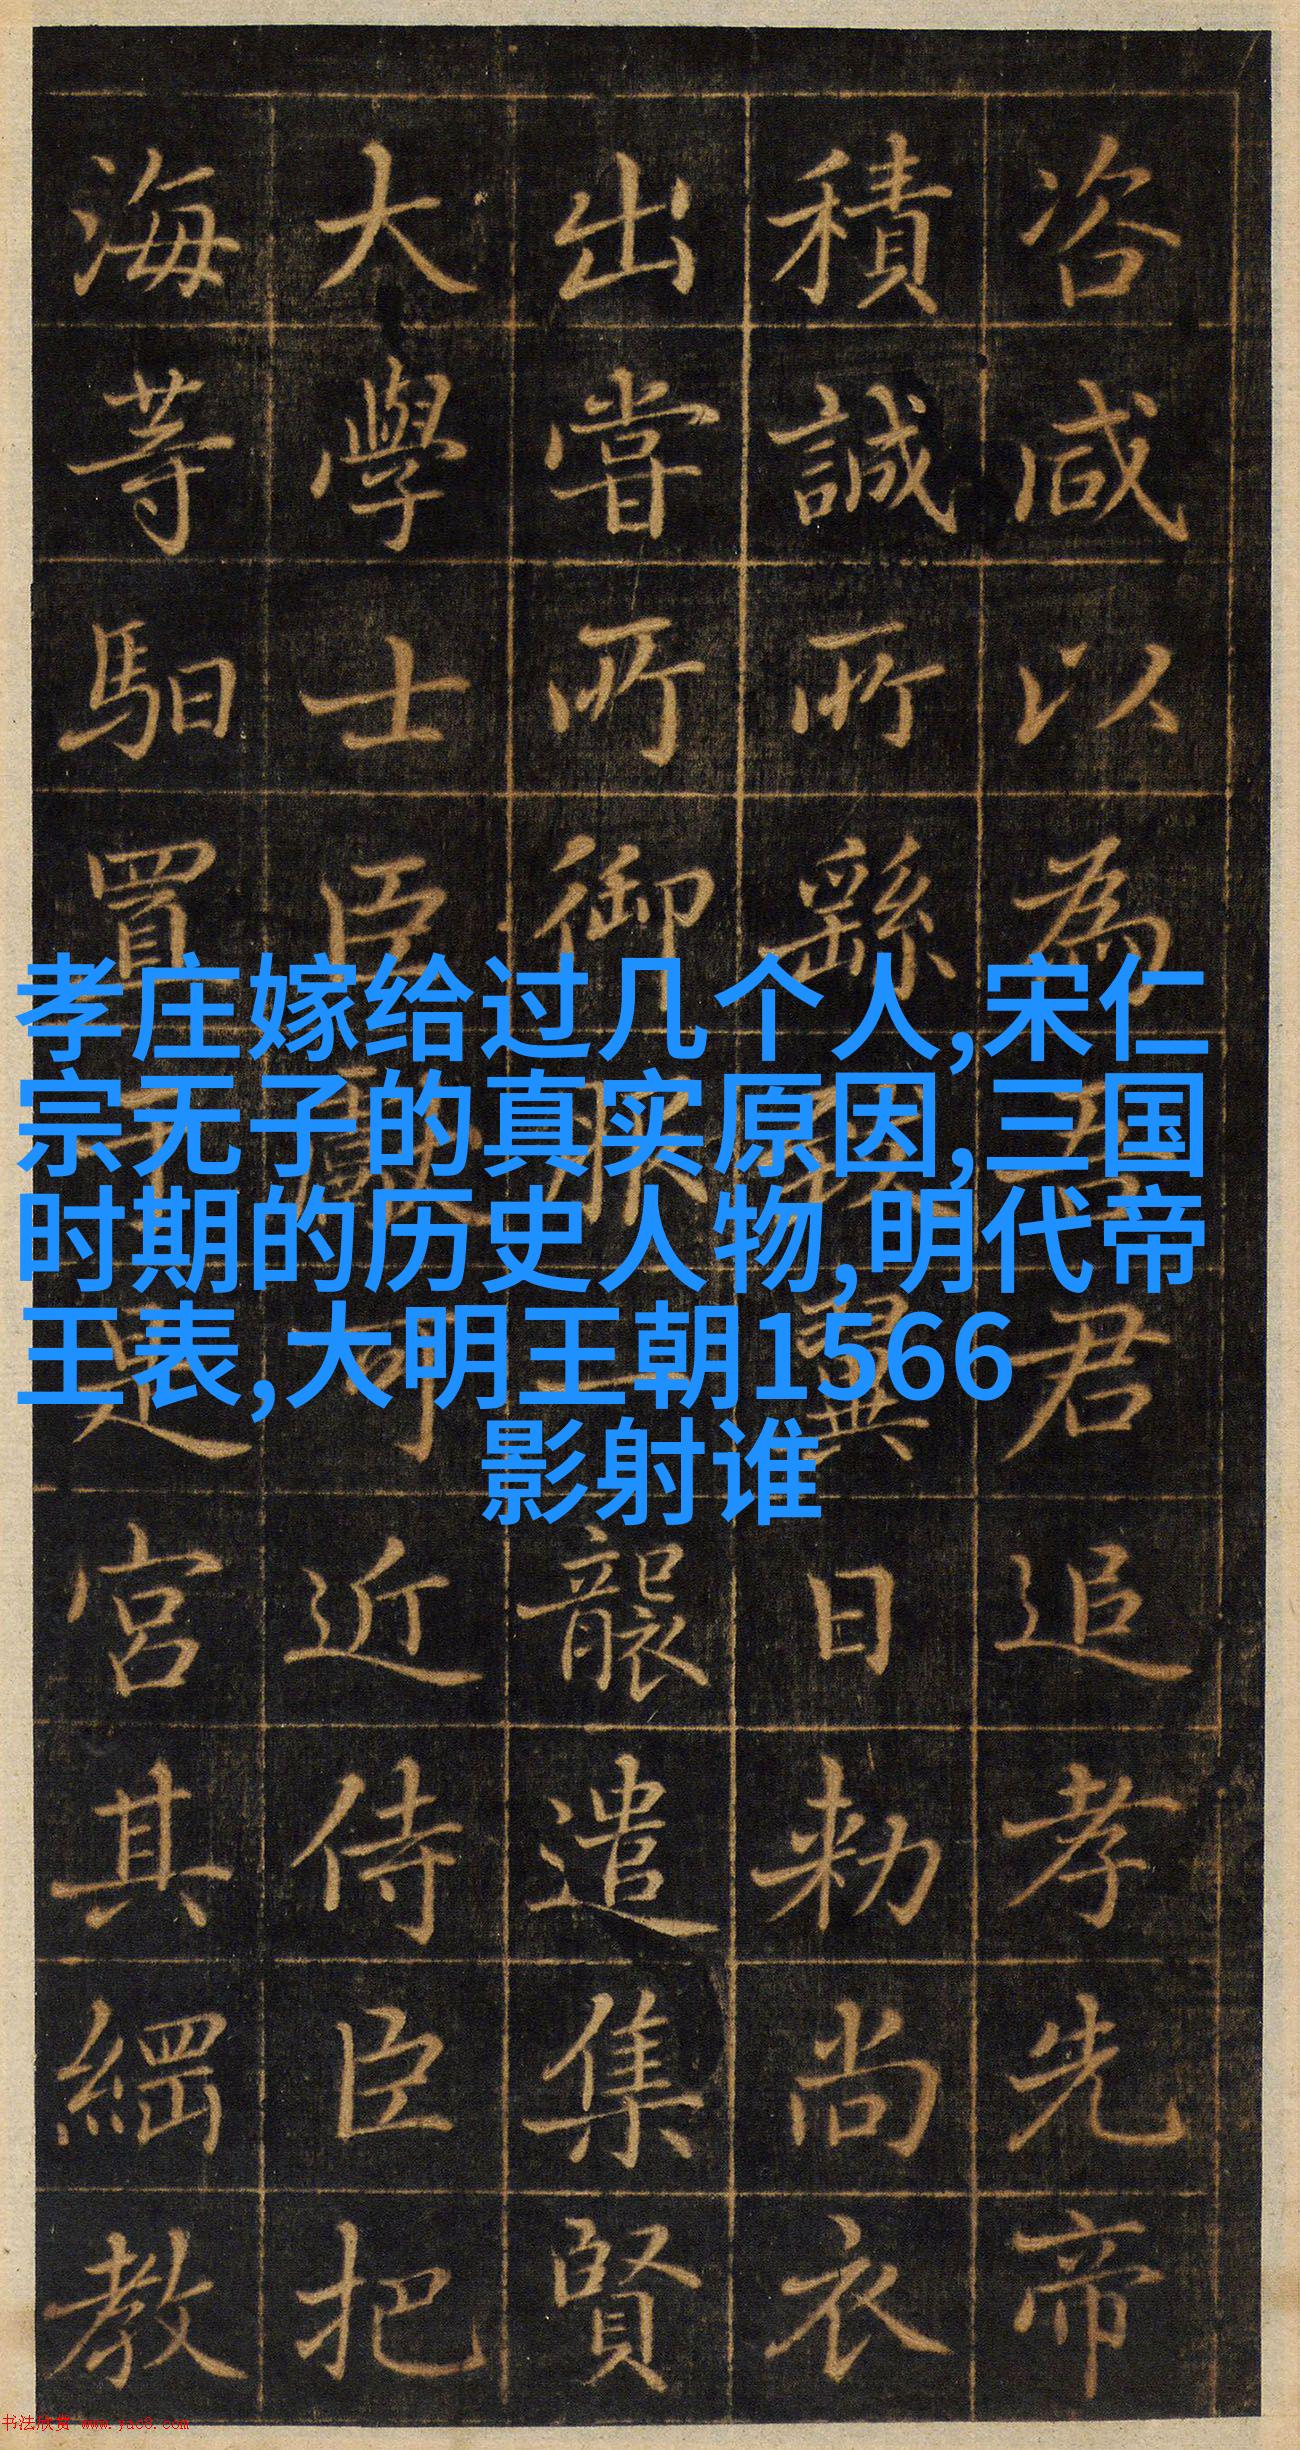 咨咸以為君追孝先帝
積誠所繇翼日勑尚衣
出嘗所御服一襲遣集賢
大學士臣近侍臣把
海等馹置是宮其綱教
孝庄嫁给过几个人,宋仁
宗无子的真实原因,三国
时期的历史人物,明代帝
王表,大明王朝1566
影射谁
书法欣赏 www.yac8.com